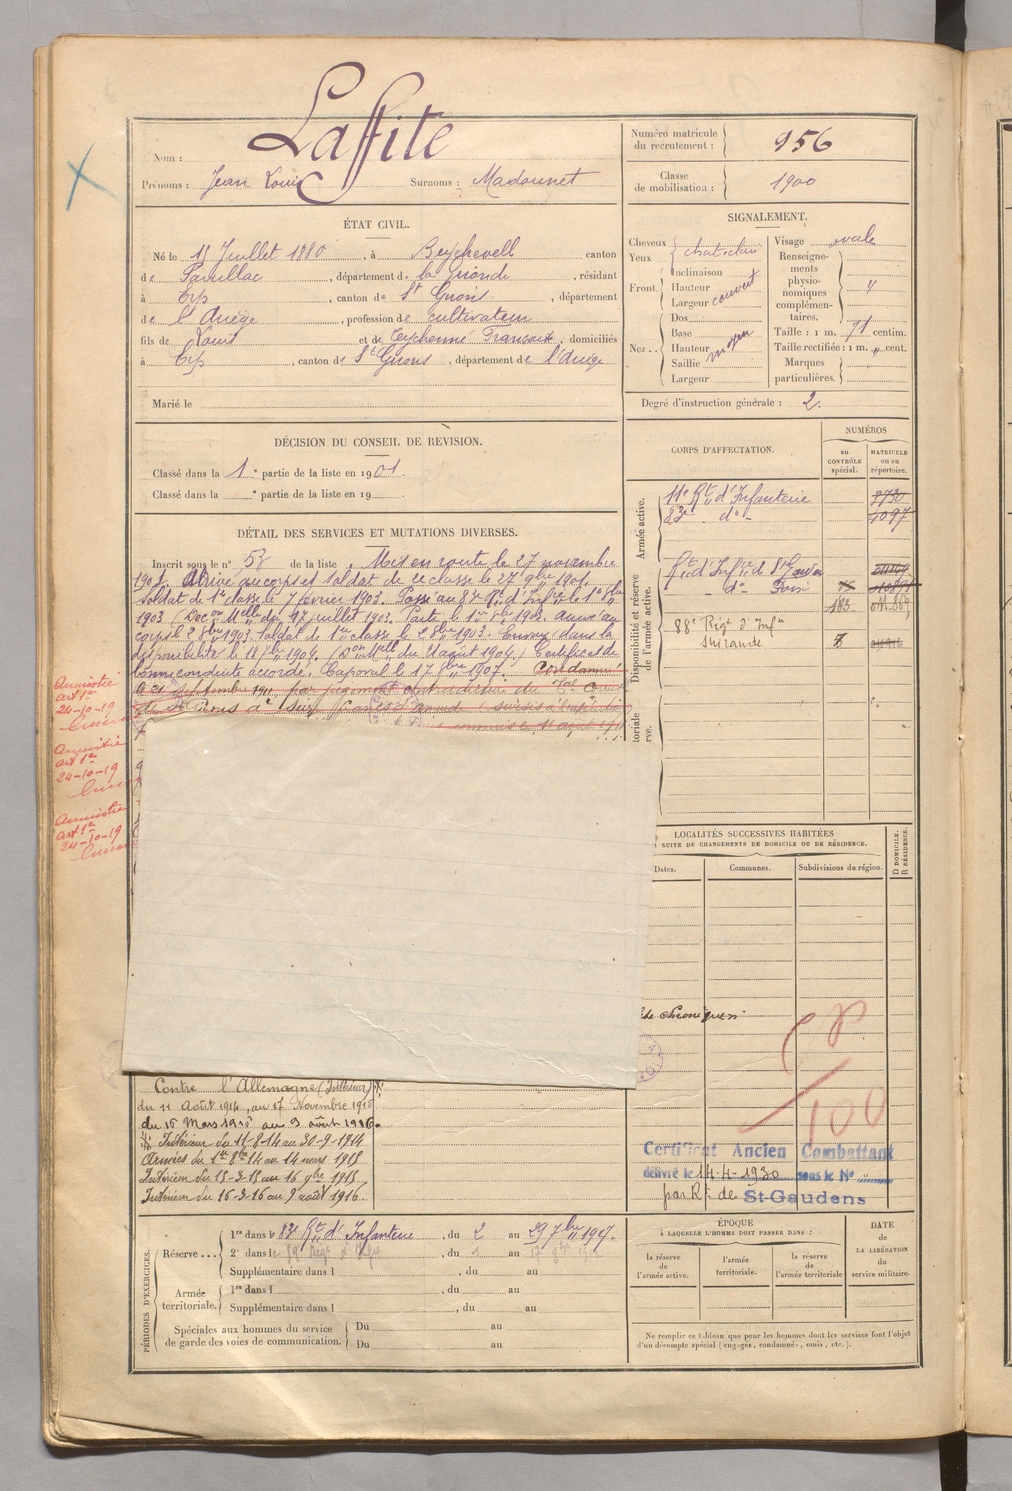 Nom : Laffite
Prénoms : Jean Louis Surnoms : Madounet
Numéro matricule
du recrutement : 956
Classe
de mobilisation : 1900
ÉTAT CIVIL.
Né le 15 Juillet 1880, à Beychevell canton
de Pauillac, département de la Gironde, résidant
à Erp, canton de St Girons, département
de l'Ariège, profession de cultivateur
fils de Louis et de Teychenné Françoise, domiciliés
à Erp, canton de St Girons, département de l'Ariège
Marié le
SIGNALEMENT.
Cheveux chat. clair
Yeux
Front. Inclinaison
Hauteur
Largeur couvert
Nez.. Dos
Base
Hauteur moyen
Saillie
Largeur
Visage ovale
Renseigne-
ments
physio-
nomiques
complémen-
taires. "
Taille : 1 m. 71 centim.
Taille rectifiée : 1 m. " cent.
Marques
particulières.
Degré d'instruction générale : 2.
DÉCISION DU CONSEIL DE RÉVISION.
Classé dans la 1e partie de la liste en 1901
Classé dans la e partie de la liste en 19
CORPS D'AFFECTATION.
NUMÉROS
au
CONTRÔLE
spécial.
MATRICULE
ou au
répertoire.
Armée active.
11e Rt d'Infanterie 3730
83e do 4097
Disponibilité et réserve
de l'armée active.
Rt d'Infrie de St
do Foix
183
88e Régt d'Infie
Mirande
DÉTAIL DES SERVICES ET MUTATIONS DIVERSES.
Inscrit sous le n° 53 de la liste. Mis en route le 27 novembre
1901. Arrivé au corps et soldat de 2e classe le 27 9bre 1901.
Soldat de 1re classe le 7 février 1903. Passé au 83e Rt d'Infrie le 1er 8bre
1903 (Don Melle du 97 juillet 1903. Parti le 1er 8bre 1903. Arrivé au
corps le 2 8bre 1903. Soldat de 1re classe le 2 8bre 1903. Envoyé dans la
disponibilité le 18 7bre 1904. (Don Melle du 21 août 1904.) Certificat de
bonne conduite accordé. Caporal le 17 7bre 1907. Condamné
le 21 septembre 1911 par jugement contradictoire du
de St Girons à seize francs d'amende
commise 11 août 1911
Amnistié
art 1er
24-10-19
Amnistié
art 1er
24-10-19
Amnistié
art 1er
24-10-19
LOCALITÉS SUCCESSIVES HABITÉES
SUITE DE CHANGEMENTS DE DOMICILE OU DE RÉSIDENCE.
Dates.
Communes.
Subdivisions de région.
D DOMICILE.
R RÉSIDENCE.
Contre l'Allemagne (Intérieur)
du 11 Août 1914, au 17 Novembre 1915
du 16 Mars 1916 au 9 août 1916.
Intérieur du 11-8-14 au 30-9-1914
Armées du 1er 8bre 14 au 14 mars 1915
Intérieur du 15-3-15 au 16 9bre 1915
Intérieur du 16-3-16 au 9 août 1916.
CP
100
Certificat Ancien Combattant
délivré le 14-4-1930 sous le No
par Rt de St-Gaudens
PÉRIODES D'EXERCICES.
Réserve ...
1re dans le 83e Rt d'Infanterie, du 2 au 29 7bre 1907.
2e dans le, du 1 au 17
Supplémentaire dans l, du au
Armée
territoriale.
1re dans l, du au
Supplémentaire dans l, du au
Spéciales aux hommes du service
de garde des voies de communication.
Du au
Du au
ÉPOQUE
À LAQUELLE L'HOMME DOIT PASSER DANS :
la réserve
de
l'armée active.
l'armée
territoriale.
la réserve
de
l'armée territoriale
DATE
de
LA LIBÉRATION
du
service militaire.
Ne remplir ce tableau que pour les hommes dont les services font l'objet
d'un décompte spécial (engagés, condamnés, omis, etc.).